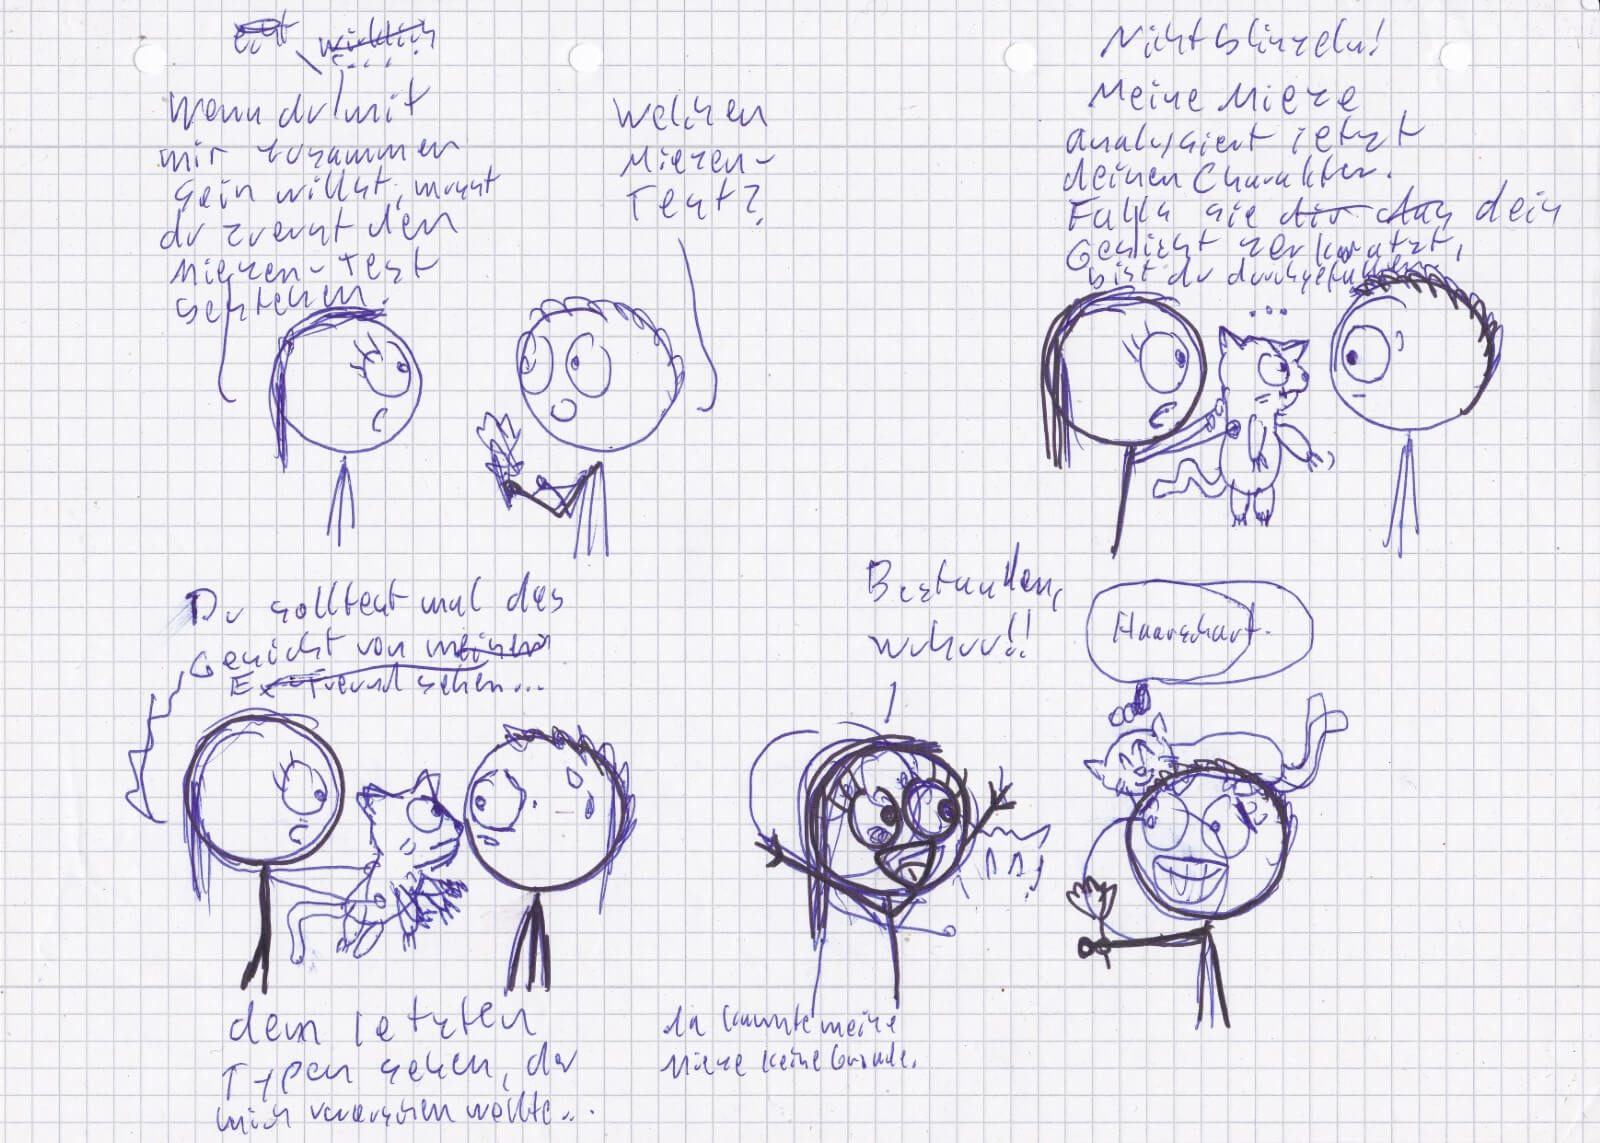 echt wirklich
Wenn du mit
mir zusammen
sein willst, musst
du zuerst den
Miezen-Test
bestehen.
Welchen
Miezen-
Test?
Nicht blinzeln!
Meine Mieze
analysiert jetzt
deinen Charakter.
Falls sie dir das dein
Gesicht zerkratzt,
bist du durchgefallen.
...
Du solltest mal das
Gesicht von meinem
Ex-Freund sehen...
dem letzten
Typen sehen, der
mich verarschen wollte...
Bestanden,
wuhuu!!
Haarscharf.
da kannte meine
Mieze keine Gnade.